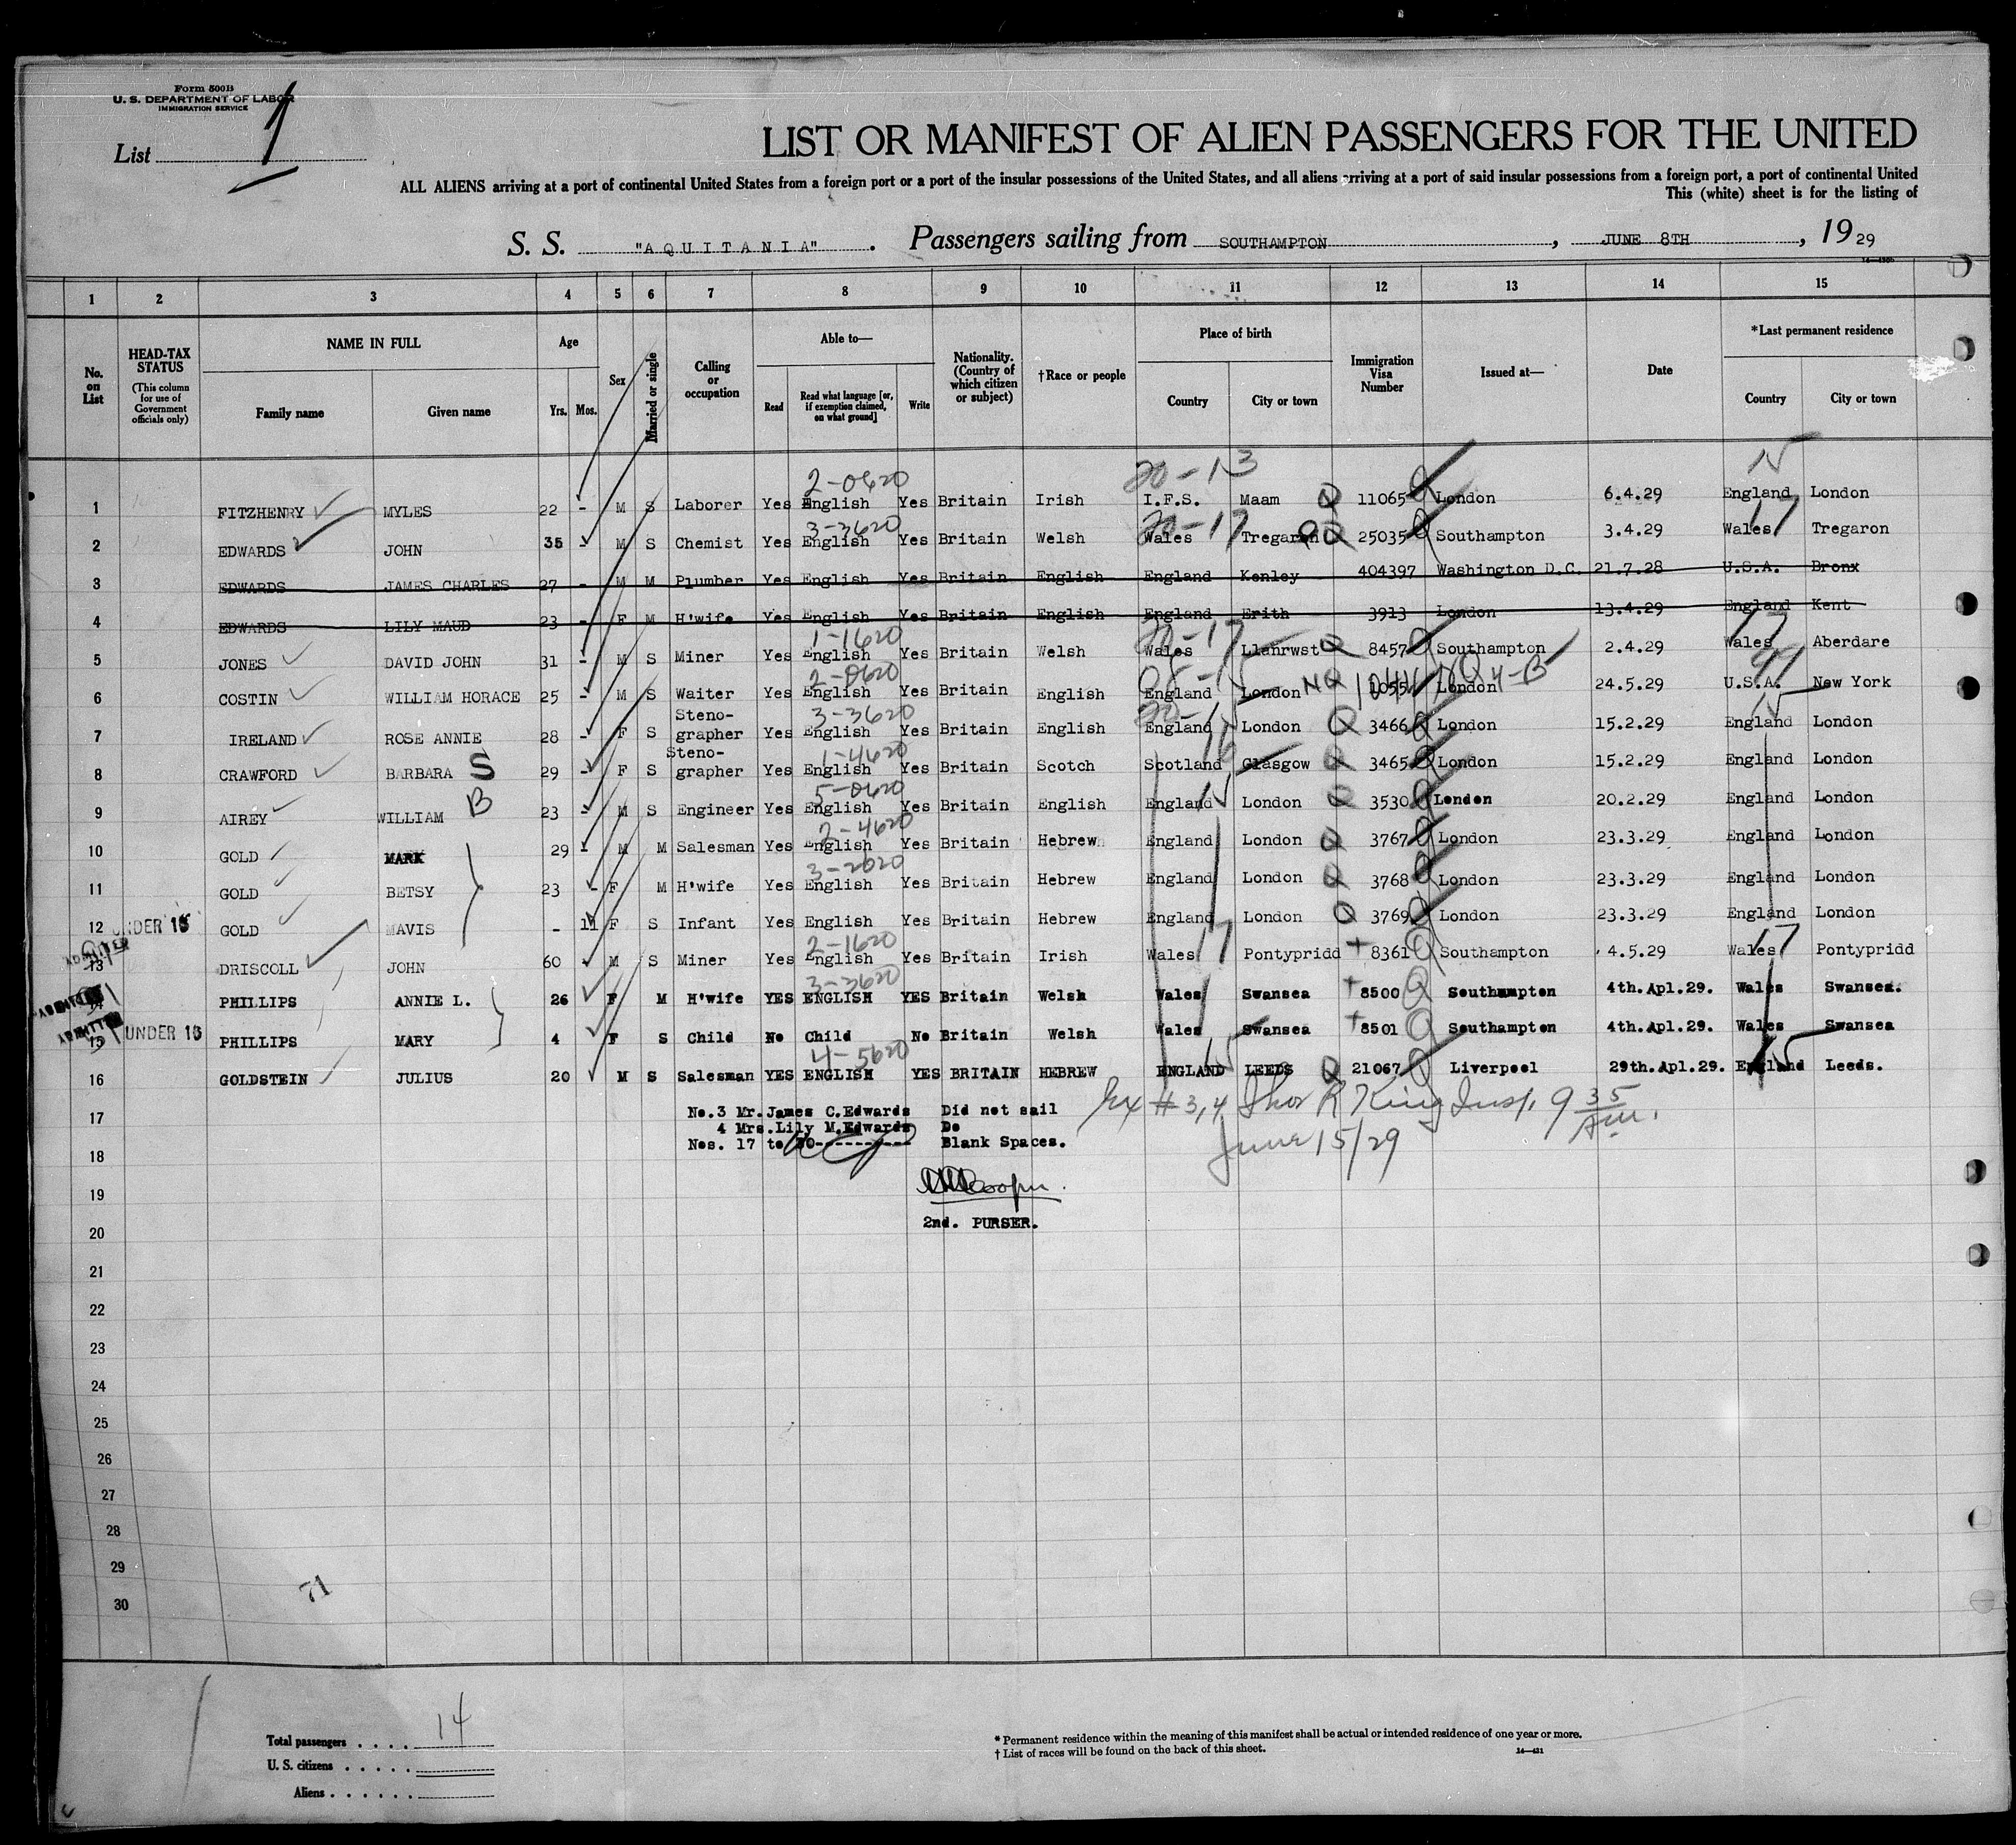 Form 500B
U. S. DEPARTMENT OF LABOR
IMMIGRATION SERVICE
List 1
LIST OR MANIFEST OF ALIEN PASSENGERS FOR THE UNITED
ALL ALIENS arriving at a port of continental United States from a foreign port or a port of the insular possessions of the United States, and all aliens arriving at a port of said insular possessions from a foreign port, a port of continental United
This (white) sheet is for the listing of
S. S. "AQUITANIA". Passengers sailing from SOUTHAMPTON, JUNE 8TH, 1929
1 2 3 4 5 6 7 8 9 10 11 12 13 14 15
No. on List
HEAD-TAX STATUS (This column for use of Government officials only)
NAME IN FULL Family name Given name
Age Yrs. Mos.
Sex
Married or single
Calling or occupation
Able to— Read Read what language [or, if exemption claimed, on what ground] Write
Nationality. (Country of which citizen or subject)
†Race or people
Place of birth Country City or town
Immigration Visa Number
Issued at—
Date
*Last permanent residence Country City or town
2-0620 20-13 15
1 FITZHENRY MYLES 22 - M S Laborer Yes English Yes Britain Irish I.F.S. Maam Q 11065 London 6.4.29 England London
3-3620 20-17 17
2 EDWARDS JOHN 35 - M S Chemist Yes English Yes Britain Welsh Wales Tregaron 25035 Southampton 3.4.29 Wales Tregaron
3 EDWARDS JAMES CHARLES 27 - M M Plumber Yes English Yes Britain English England Kenley 404397 Washington D.C. 21.7.28 U.S.A. Bronx
4 EDWARDS LILY MAUD 23 - F M H'wife Yes English Yes Britain English England Erith 3913 London 13.4.29 England Kent
1-1620 20-17 17
5 JONES DAVID JOHN 31 - M S Miner Yes English Yes Britain Welsh Wales Llanrwst Q 8457 Southampton 2.4.29 Wales Aberdare
2-0620
6 COSTIN WILLIAM HORACE 25 - M S Waiter Yes English Yes Britain English England London NQ 1055 London 24.5.29 U.S.A. New York
3-3620
7 IRELAND ROSE ANNIE 28 - F S Steno-grapher Yes English Yes Britain English England London Q 3466 London 15.2.29 England London
1-4620
8 CRAWFORD BARBARA S 29 - F S Steno-grapher Yes English Yes Britain Scotch Scotland Glasgow Q 3465 London 15.2.29 England London
5-0620
9 AIREY WILLIAM B 23 - M S Engineer Yes English Yes Britain English England London Q 3530 London 20.2.29 England London
2-4620
10 GOLD MARK 29 - M M Salesman Yes English Yes Britain Hebrew England London Q 3767 London 23.3.29 England London
3-2620
11 GOLD BETSY 23 - F M H'wife Yes English Yes Britain Hebrew England London Q 3768 London 23.3.29 England London
12 UNDER 16 GOLD MAVIS - 11 F S Infant Yes English Yes Britain Hebrew England London Q 3769 London 23.3.29 England London
2-1620
13 ADMITTED DRISCOLL JOHN 60 M S Miner Yes English Yes Britain Irish Wales 17 Pontypridd + 8361 Southampton 4.5.29 Wales 17 Pontypridd
3-3620
14 ADMITTED PHILLIPS ANNIE L. 26 F M H'wife YES ENGLISH YES Britain Welsh Wales Swansea + 8500 Southampton 4th.Apl.29. Wales Swansea.
15 ADMITTED UNDER 16 PHILLIPS MARY 4 F S Child No Child No Britain Welsh Wales Swansea + 8501 Southampton 4th.Apl.29. Wales Swansea
4-5620
16 GOLDSTEIN JULIUS 20 M S Salesman YES ENGLISH YES BRITAIN HEBREW ENGLAND LEEDS Q 21067 Liverpool 29th.Apl.29. England Leeds.
17 No.3 Mr.James C.Edwards Did not sail
4 Mrs.Lily M.Edwards Do
Nos. 17 to 30---------- Blank Spaces.
Ex # 3,4 Thos R King Insp. 9 35 AM.
June 15/29
18
19
2nd. PURSER.
20
21
22
23
24
25
26
27
28
29
30
71
Total passengers . . . . 14
U. S. citizens . . . . .
Aliens . . . . . .
* Permanent residence within the meaning of this manifest shall be actual or intended residence of one year or more.
† List of races will be found on the back of this sheet.
14—431